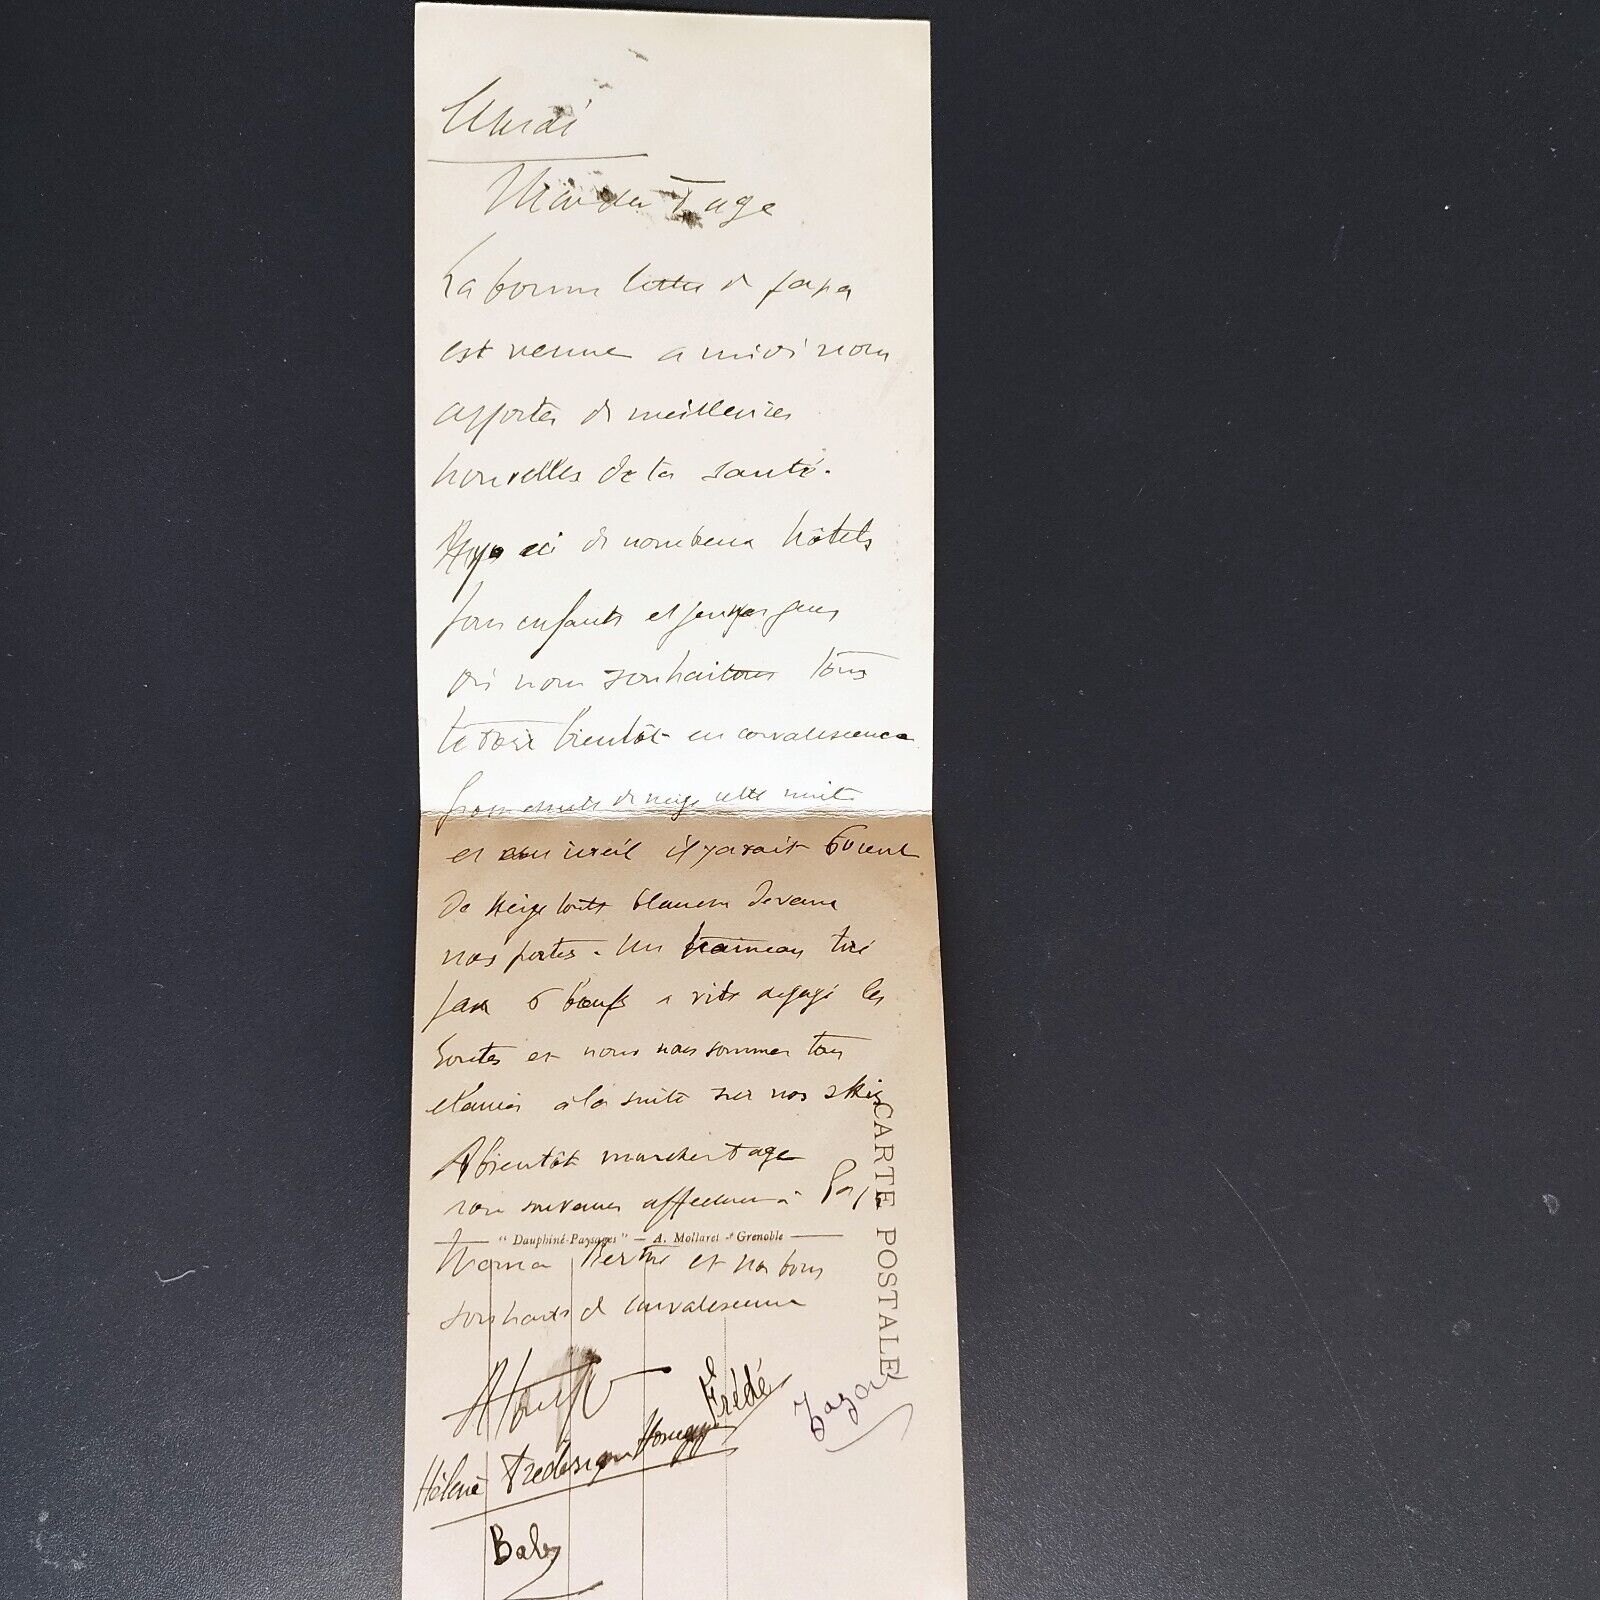 La bonne lettre de papa
est venue a midi nous
apporter de meilleures
nouvelles de ta santé.
ici de nombreux hôtels
pour enfants et jeunes gens
où nous souhaitons tous
te voir bientôt en convalescence
de neige cette nuit
et au réveil il y avait 60 cent
de neige toute blanche devant
nos portes. Un traineau tiré
par 6 bœufs a vite dégagé les
routes et nous nous sommes tous
élancés à la suite sur nos skis
A bientôt
affectueux à Papa
Mama Berthe et nos bons
souhaits de convalescence
"Dauphiné-Paysages" — A. Mollaret - Grenoble
CARTE POSTALE
Frédé
Hélène
Baby